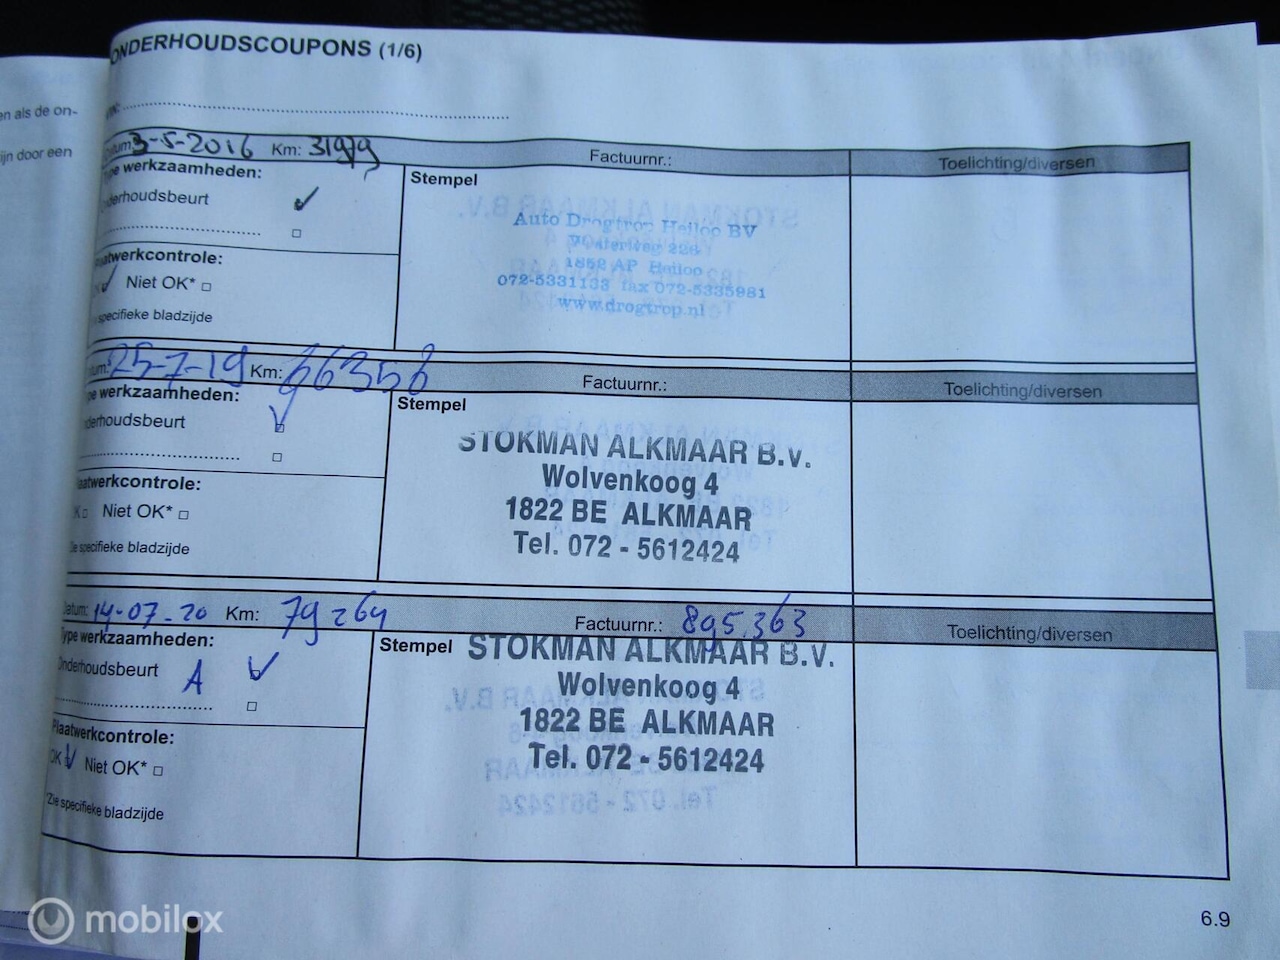 en als de on-
ijn door een
ONDERHOUDSCOUPONS (1/6)
Datum: 3-5-2016 Km: 31979 Factuurnr.: Toelichting/diversen
Type werkzaamheden:
Onderhoudsbeurt ✓
Plaatwerkcontrole:
Niet OK* □
specifieke bladzijde
Stempel
Auto Drogtrop Heiloo BV
Westerweg 226
1852 AP Heiloo
072-5331133 fax 072-5335981
www.drogtrop.nl
Datum: 25-7-19 Km: 66356 Factuurnr.: Toelichting/diversen
Type werkzaamheden:
Onderhoudsbeurt
Plaatwerkcontrole:
OK □ Niet OK* □
Zie specifieke bladzijde
Stempel
STOKMAN ALKMAAR B.V.
Wolvenkoog 4
1822 BE ALKMAAR
Tel. 072 - 5612424
Datum: 14-07-20 Km: 79264 Factuurnr.: 895.363 Toelichting/diversen
Type werkzaamheden:
Onderhoudsbeurt A
Plaatwerkcontrole:
OK Niet OK* □
*Zie specifieke bladzijde
Stempel
STOKMAN ALKMAAR B.V.
Wolvenkoog 4
1822 BE ALKMAAR
Tel. 072 - 5612424
6.9
mobilox